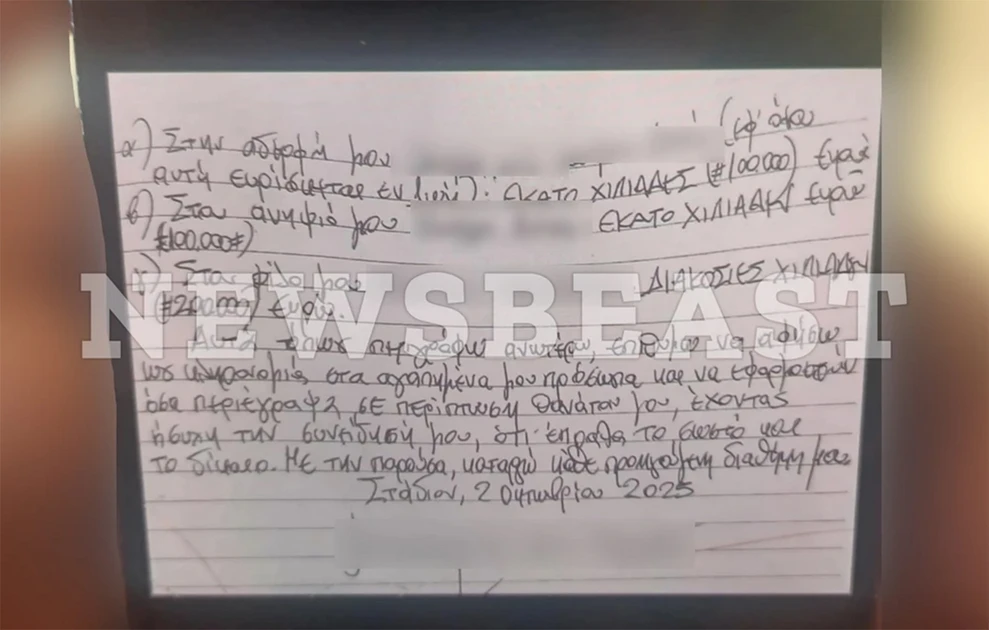 (εφ' όσον
α) Στην αδερφή μου
αυτή ευρίσκεται εν ζωή): ΕΚΑΤΟ ΧΙΛΙΑΔΕΣ (#100.000) Ευρώ
β) Στον ανιψιό μου ΕΚΑΤΟ ΧΙΛΙΑΔΕΣ Ευρώ
(#100.000#)
γ) Στον φίλο μου ΔΙΑΚΟΣΙΕΣ ΧΙΛΙΑΔΕΣ
(#200.000) Ευρώ.
NEWSBEAST
Αυτά όπως περιγράφω ανωτέρω, επιθυμώ να αφήσω
ως κληρονομιά στα αγαπημένα μου πρόσωπα και να εφαρμοστούν
όσα περιέγραψα, σε περίπτωση θανάτου μου, έχοντας
ήσυχη την συνείδησή μου, ότι έπραξα το σωστό και
το δίκαιο. Με την παρούσα, καταργώ κάθε προηγούμενη διαθήκη μου
2 Οκτωβρίου 2025